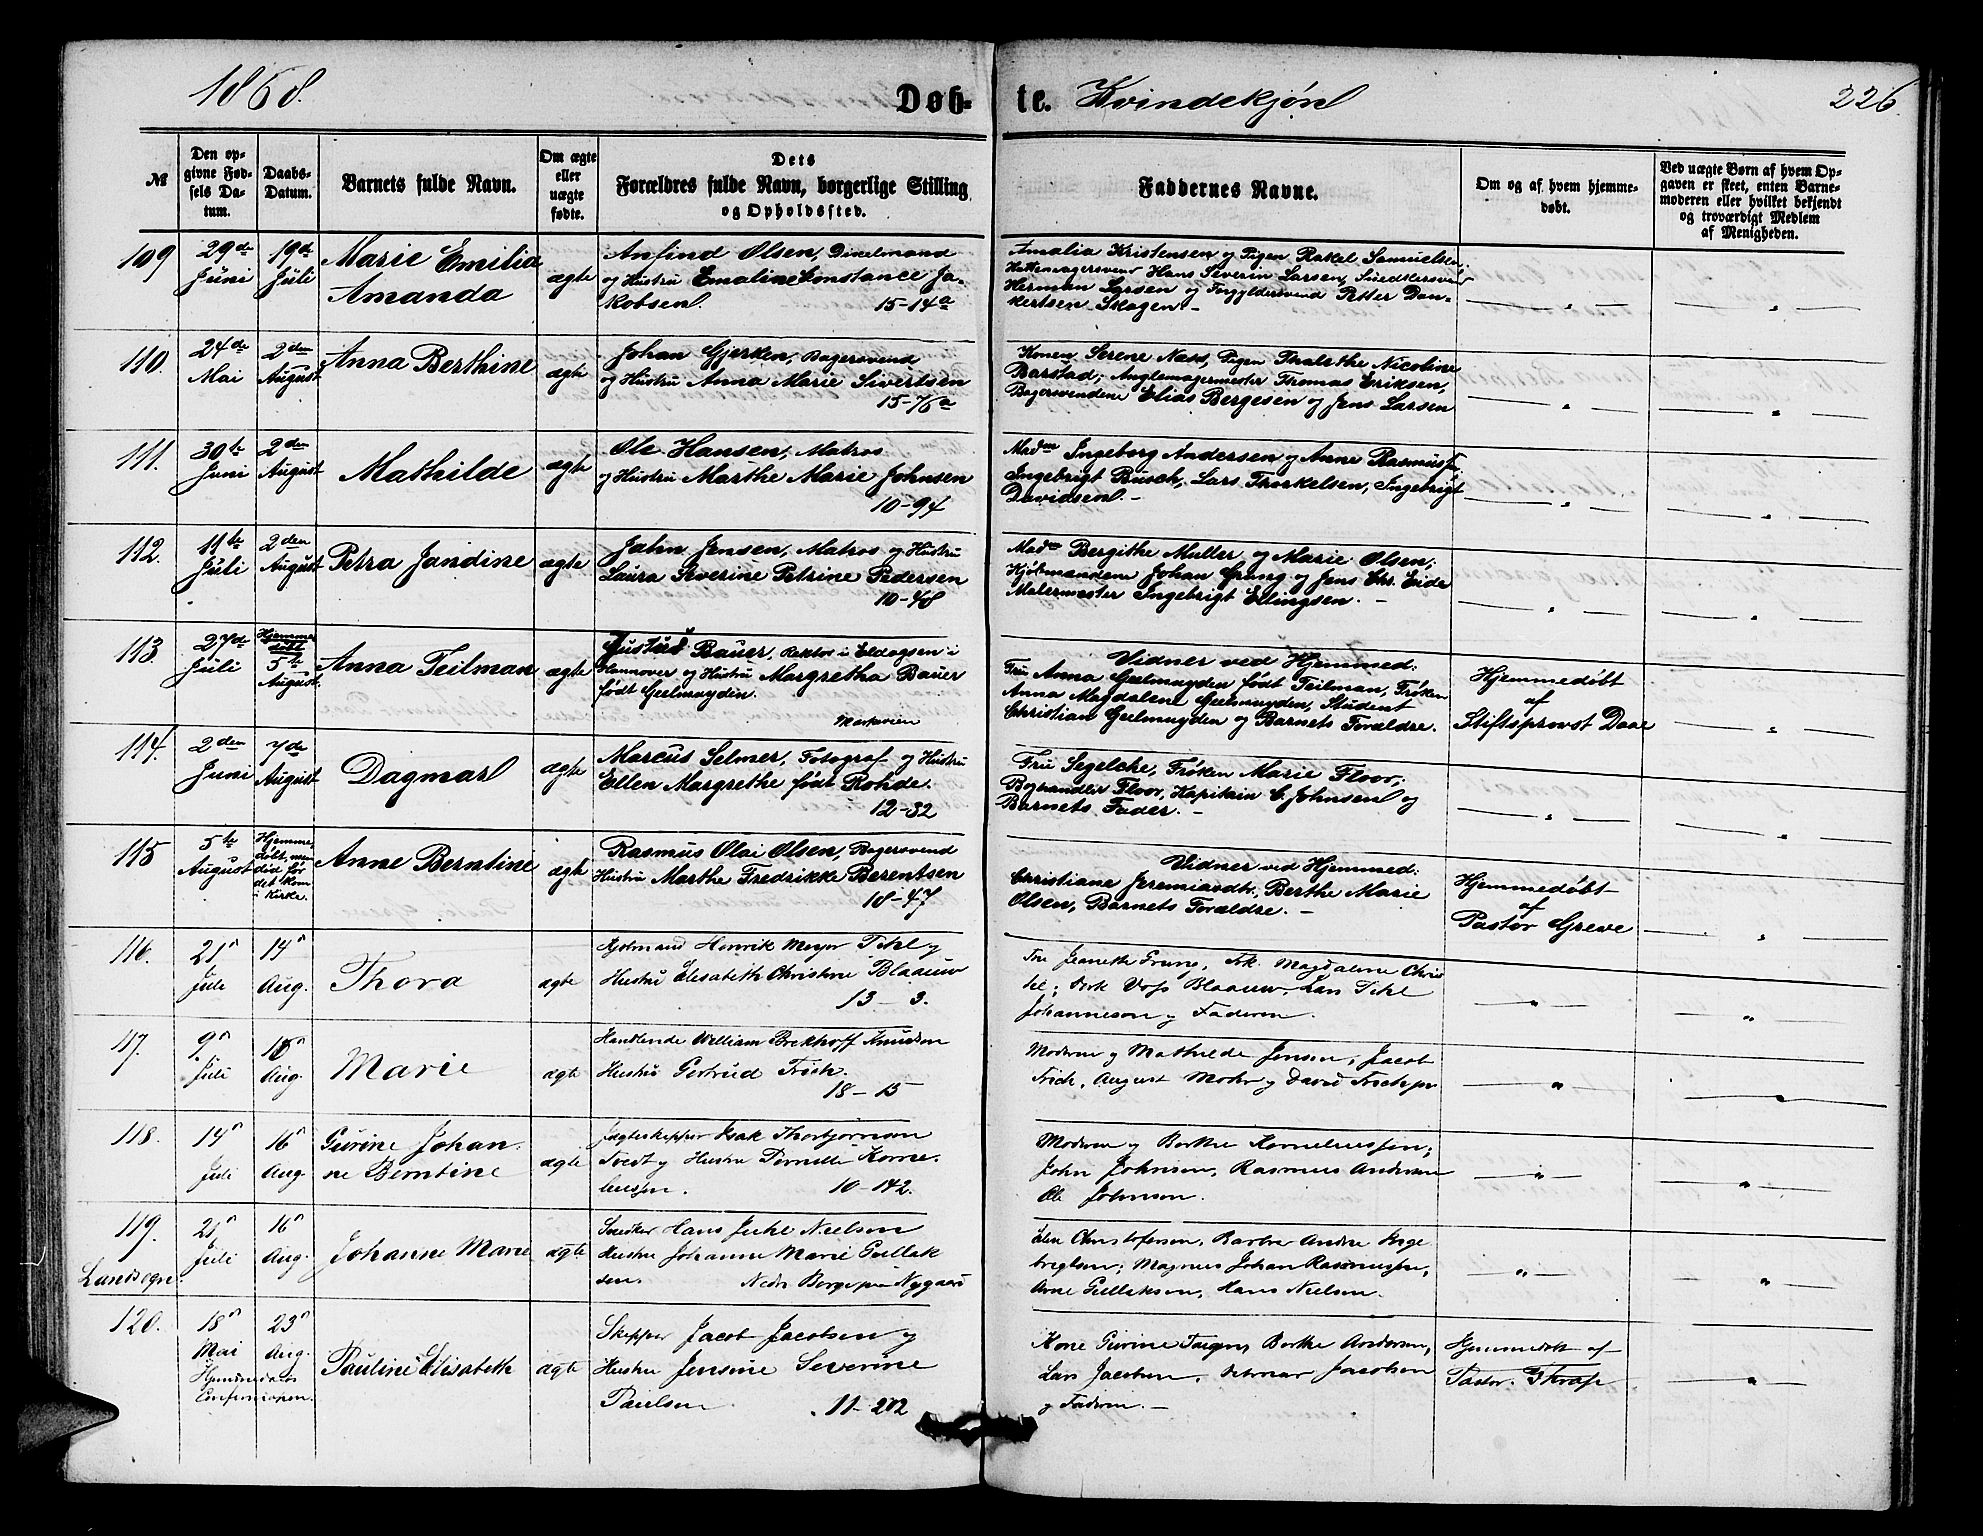 1868.
Døb-
te. Kvindekjøn
226.
№
Den op-
givne Fød-
sels Da-
tum.
Daabs-
Datum.
Barnets fulde Navn.
Om ægte
eller
uægte
fødte.
Dets
Forældres fulde Navn, borgerlige Stilling
og Opholdssted.
Faddernes Navne.
Om og af hvem hjemme-
døbt.
Ved uægte Børn af hvem Op-
gaven er skeet, enten Barne-
moderen eller hvilket bekjendt
og troværdigt Medlem
af Menigheden.
109
29de
Juni
19de
Juli
Marie Emilia
Amanda
ægte
Anfind Olsen,
og Hustru Emaline Constance Ja-
kobsen.
15-14a
Amalia Kristensen og Pigen Rakel Samuelsen,
Hattemagersvend Hans Severin Larsen, Snedkersvend
Herman Larsen og Forgyldersvend Petter Dan-
kertsen Skogen.-
110.
24de
Mai
2den
August
Anna Berthine
ægte
Johan Gjerken, Bagersvend
og Hustru Anna Marie Sivertsen
15-76a
Konen Serene Næss, Pigen Thalethe Nicoline
Barstad, Anglemagermester Thomas Eriksen,
Bagersvendene Elias Bergesen og Jens Larsen
111.
30te
Juni
2den
August
Mathilde
ægte
Ole Hansen, Matros
og Hustru Marthe Marie Johnsen
10-94
Madm Ingeborg Andersen og Anne Rasmus
Ingebrigt Busch, Lars Thorkelsen, Ingebrigt
Davidsen.-
112.
11te
Juli
2den
August
Petra Jandine
ægte
John Jensen, Matros og Hustru
Laura Severine Petrine Pedersen
10-48
Madm Bergithe Muller og Marie Olsen,
Kjøbmændene Johan Grung og Jens Chr. Eide
Malermester Ingebrigt Ellingsen.-
113.
27de
Juli
Hjemme-
døbt
5te
August.
Anna Teilman
ægte
Justus Bauer, Rektor i Eldagsen i
Hannover og Hustru Margretha Bauer
født Geelmuyden.
Vidner ved Hjemmed.
Fru Anna Geelmuyden født Teilman, Frøken
Anna Magdalene Geelmuyden, Student
Christian Geelmuyden og Barnets Forældre.
Hjemmedøbt
af
Stiftsprovst Daae
114.
2den
Juni
7de
August
Dagmar
ægte
Marcus Selmer, Fotograf og Hustru
Ellen Margrethe født Rohde.
12-32
Fru Segelcke, Frøken Marie Floor,
Boghandler Floor, Kapitain C. Johnsen og
Barnets Fader.-
115
5te
August
Hjemme-
døbt, men
død før
det kom
i Kirke.
Anne Berntine
ægte
Rasmus Olai Olsen, Bagersvend
Hustru Marthe Fredrikke Berentsen
18-47
Vidner ved Hjemmed:
Christiane Jeremiasdtr, Berthe Marie
Olsen, Barnets Forældre.-
Hjemmedøbt
af
Pastor Greve
116.
21
Juli
14
Aug.
Thora
ægte
Kjøbmand Henrik Meyer Pihl og
Hustru Elisabeth Christine Blaauw
13-3.
Fru Jeanette Grung, Frk. Magdalene Chris
Dirk Voss Blaauw, Lars Pihl
Johannesen og Faderen.
117.
9
Juli
Aug.
Marie
ægte
Handlende William Brekhoff Knudsen
Hustru Gertrud Frich.
18-15
Moderen og Mathilde Jensen, Jacob
Frich, August Mohr og David Frich
118.
14
Juli
16
Aug.
Gurine Johan-
ne Berntine
ægte
Jægteskipper Isak Thorbjørnsen
Tvedt og Hustru Pernille Korne-
10-142.
Moderen og Berthe
John Johnsen, Rasmus Andersen
Ole Johnsen.
119.
21
Juli
16
Aug.
Johanne Marie
ægte
Snedker Hans Juhl Nielsen
Hustru Johanne Marie Gullak
sen.
Christofersen, Barbra Andrea Inge
brigtsen; Magnus Johan
Arne Gullaksen, Hans Nielsen.
120.
18
Mai
23
Aug.
Pauline Elisabeth
ægte
Skipper Jacob Jacobsen og
Hustru Jensine Severine
Paulsen.
11-202
Kone Gurine Berthe Andersen,
Lars Jacobsen, Jacobsen
og Faderen.-
Hjemmedøbt af
Pastor.